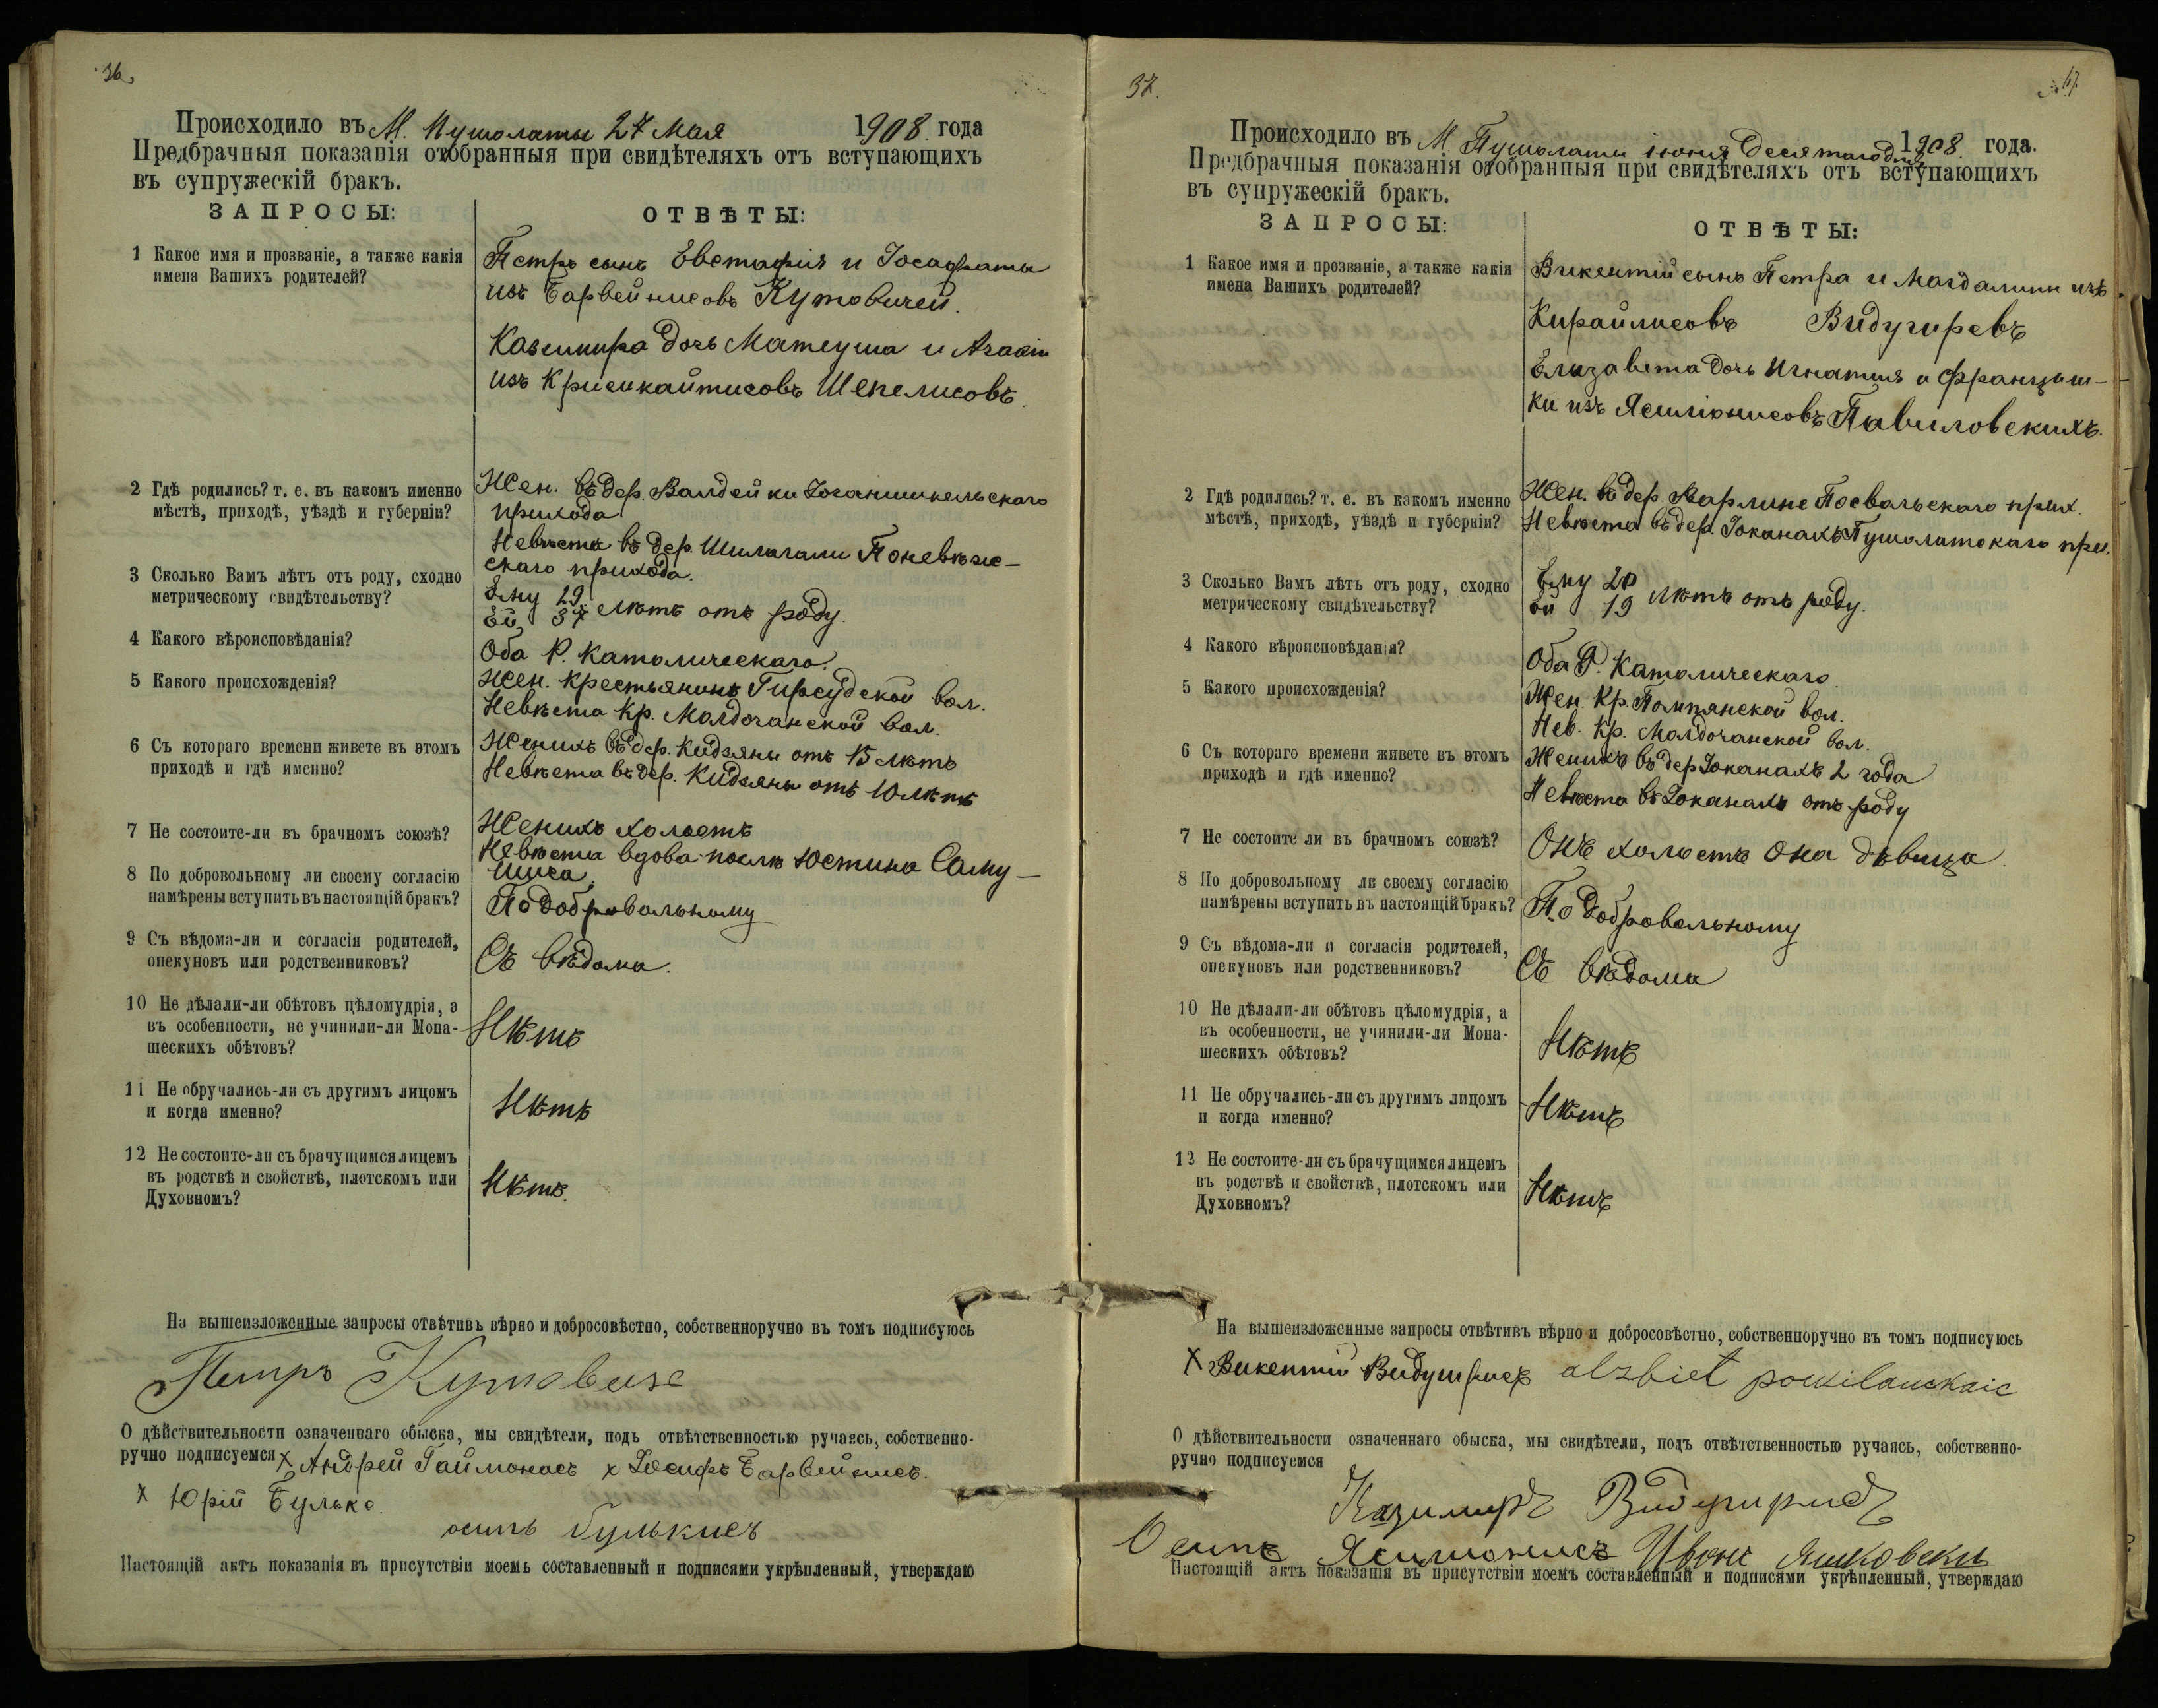 36.
Происходило въ М. Пушолаты 27 Мая 1908 года
Предбрачныя показанія отобранныя при свидѣтеляхъ отъ вступающихъ
въ супружескій бракъ.
ЗАПРОСЫ:
ОТВѢТЫ:
1 Какое имя и прозваніе, а также какія
имена Вашихъ родителей?
Петръ сынъ Евстафія и Іосафаты
изъ Барвейнисовъ Кутовичей.
Казимира дочь Матеуша и Агаѳіи
изъ Крисикайтисовъ Шепелисовъ.
2 Гдѣ родились? т. е. въ какомъ именно
мѣстѣ, приходѣ, уѣздѣ и губерніи?
Жен. въ дер. Валдейки Іоганишкельскаго
прихода
Невѣста въ дер. Шилагали Поневѣж-
скаго прихода.
3 Сколько Вамъ лѣтъ отъ роду, сходно
метрическому свидѣтельству?
Ему 29
Ей 37 лѣтъ отъ роду.
4 Какого вѣроисповѣданія?
Оба Р. Католическаго.
5 Какого происхожденія?
Жен. крестьянинъ Гирсудской вол.
Невѣста кр. Малдочанской вол.
6 Съ котораго времени живете въ этомъ
приходѣ и гдѣ именно?
Женихъ въ дер. Кидзяны отъ 15 лѣтъ
Невѣста въ дер. Кидзяны отъ 10 лѣтъ
7 Не состоите-ли въ брачномъ союзѣ?
Женихъ холостъ
Невѣста вдова послѣ Юстина Саму-
лиса.
8 По добровольному ли своему согласію
намѣрены вступить въ настоящій бракъ?
По добровольному
9 Съ вѣдома-ли и согласія родителей,
опекуновъ или родственниковъ?
Съ вѣдома.
10 Не дѣлали-ли обѣтовъ цѣломудрія, а
въ особенности, не учинили-ли Мона-
шескихъ обѣтовъ?
Нѣтъ
11 Не обручались-ли съ другимъ лицомъ
и когда именно?
Нѣтъ
12 Не состоите-ли съ брачущимся лицемъ
въ родствѣ и свойствѣ, плотскомъ или
Духовномъ?
Нѣтъ.
На вышеизложенные запросы отвѣтивъ вѣрно и добросовѣстно, собственноручно въ томъ подписуюсь
Петръ Кутовичъ
О дѣйствительности означеннаго обыска, мы свидѣтели, подъ отвѣтственностью ручаясь, собственно-
ручно подписуемся х Андрей Гаймонасъ х Іосифъ Барвейнисъ.
х Юрій Бульке.
осипъ булькисъ
Настоящій актъ показанія въ присутствіи моемъ составленный и подписями укрѣпленный, утверждаю
37.
Происходило въ М. Пушолаты іюня Десятаго дня 1908 года.
Предбрачныя показанія отобранныя при свидѣтеляхъ отъ вступающихъ
въ супружескій бракъ.
ЗАПРОСЫ:
ОТВѢТЫ:
1 Какое имя и прозваніе, а также какія
имена Вашихъ родителей?
Викентій сынъ Петра и Магдалины изъ
Кирайлисовъ Видугирёвъ
Елизавета дочь Игнатія и Францѣш-
ки изъ Ясиліонисовъ Павиловскихъ.
2 Гдѣ родились? т. е. въ какомъ именно
мѣстѣ, приходѣ, уѣздѣ и губерніи?
Жен. въ дер. Варлине Посвольскаго прих.
Невѣста въ дер. Іоканахъ Пушолатскаго при.
3 Сколько Вамъ лѣтъ отъ роду, сходно
метрическому свидѣтельству?
Ему 20
Ей 19 лѣтъ отъ роду.
4 Какого вѣроисповѣданія?
Оба Р. Католическаго
5 Какого происхожденія?
Жен. Кр. Помпянской вол.
Нев. Кр. Малдочанской вол.
6 Съ котораго времени живете въ этомъ
приходѣ и гдѣ именно?
Женихъ въ дер Іоканахъ 2 года
Невѣста въ Іоканахъ отъ роду
7 Не состоите ли въ брачномъ союзѣ?
Онъ холостъ Она дѣвица.
8 По добровольному ли своему согласію
намѣрены вступить въ настоящій бракъ?
По добровольному
9 Съ вѣдома-ли и согласія родителей,
опекуновъ или родственниковъ?
Съ вѣдома
10 Не дѣлали-ли обѣтовъ цѣломудрія, а
въ особенности, не учинили-ли Мона-
шескихъ обѣтовъ?
Нѣтъ
11 Не обручались-ли съ другимъ лицомъ
и когда именно?
Нѣтъ
12 Не состоите-ли съ брачущимся лицемъ
въ родствѣ и свойствѣ, плотскомъ или
Духовномъ?
Нѣтъ
На вышеизложенные запросы отвѣтивъ вѣрно и добросовѣстно, собственноручно въ томъ подписуюсь
х Викентій Видугирисъ alzbiet powilauckaic
О дѣйствительности означеннаго обыска, мы свидѣтели, подъ отвѣтственностью ручаясь, собственно-
ручно подписуемся
Казимиръ Видугирисъ
Осипъ Ясилионисъ Иванъ Яшковски
Настоящій актъ показанія въ присутствіи моемъ составленный и подписями укрѣпленный, утверждаю